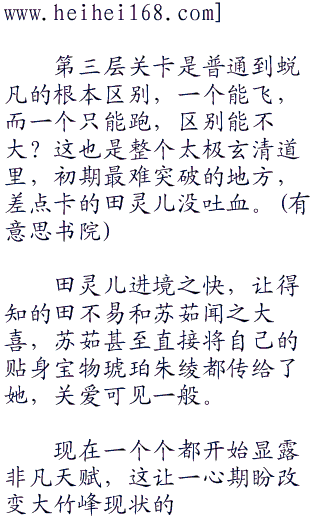 www.heihei168.com]
第三层关卡是普通到蜕
凡的根本区别，一个能飞，
而一个只能跑，区别能不
大？这也是整个太极玄清道
里，初期最难突破的地方，
差点卡的田灵儿没吐血。(有
意思书院)
田灵儿进境之快，让得
知的田不易和苏茹闻之大
喜，苏茹甚至直接将自己的
贴身宝物琥珀朱绫都传给了
她，关爱可见一般。
现在一个个都开始显露
非凡天赋，这让一心期盼改
变大竹峰现状的